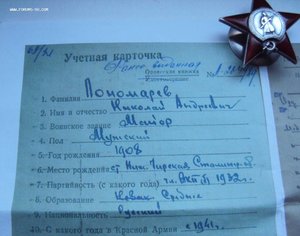 Учетная карточка
Ранее выданная
Орденская книжка
1. Фамилия Пономарев
2. Имя и отчество Николай Андреевич
3. Воинское звание Майор
4. Пол Мужской
5. Год рождения 1908
6. Место рождения ст. Ниж. Чирская
7. Партийность (с какого года) чл. ВКП(б) 1932 г.
8. Образование
9. Национальность Русский
10. С какого года в Красной Армии с 1941 г.